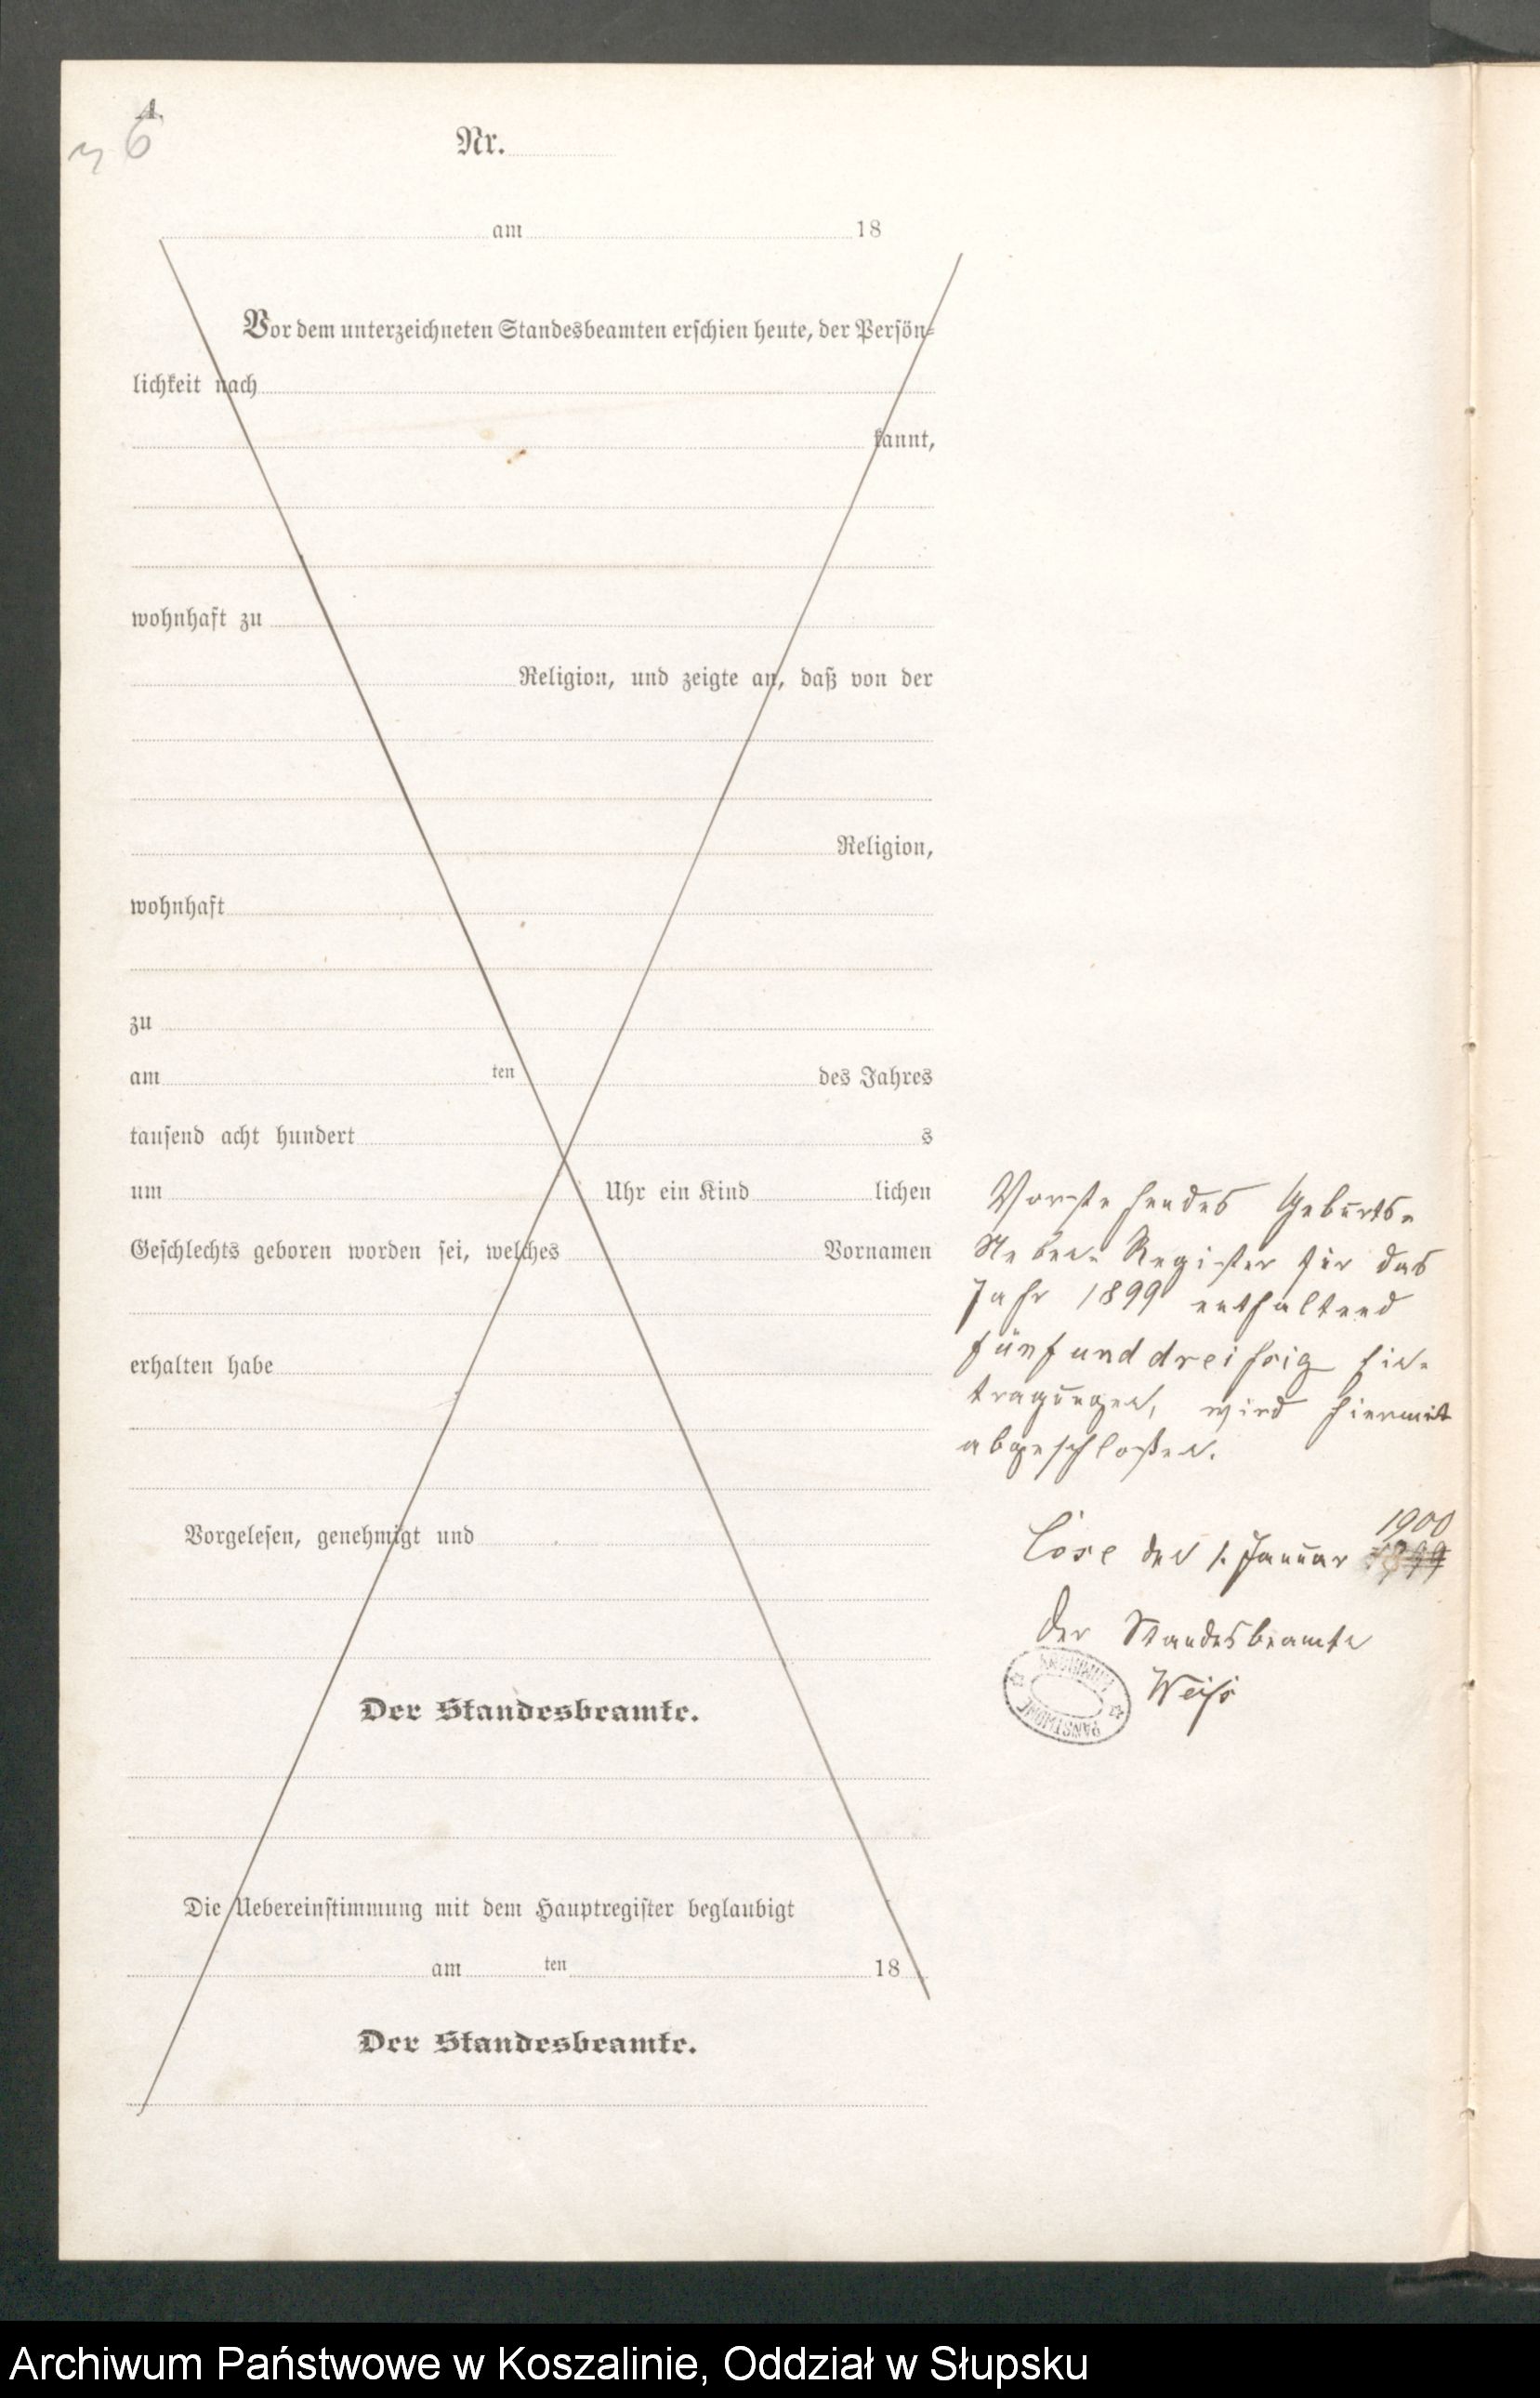 A.
36
Nr.
am 18
Vor dem unterzeichneten Standesbeamten erschien heute, der Persön-
lichkeit nach
kannt,
wohnhaft zu
Religion, und zeigte an, daß von der
Religion,
wohnhaft
zu
am ten des Jahres
tausend acht hundert s
um Uhr ein Kind lichen
Geschlechts geboren worden sei, welches Vornamen
erhalten habe
Vorgelesen, genehmigt und
Der Standesbeamte.
Die Uebereinstimmung mit dem Hauptregister beglaubigt
am ten 18
Der Standesbeamte.
Vorstehendes Geburts-
Neben-Register für das
Jahr 1899 enthaltend
fünfunddreißig Ein-
tragungen, wird hiermit
abgeschloßen.
1900
Löse den 1. Januar 1899
Der Standesbeamte
Weiß
ARCHIWUM
PAŃSTWOWE
Archiwum Państwowe w Koszalinie, Oddział w Słupsku